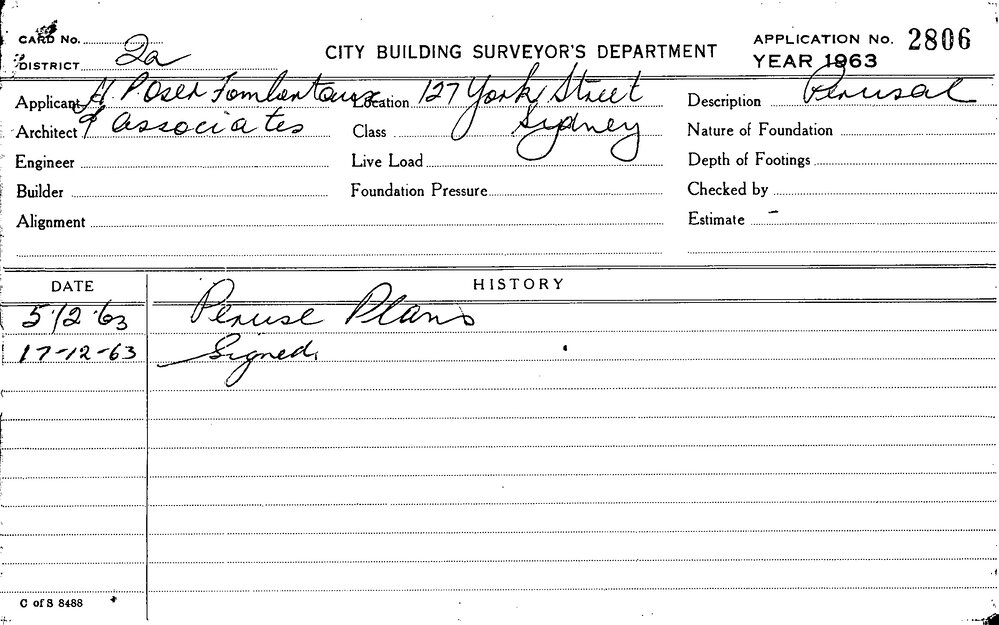 CARD No.
DISTRICT 2a
CITY BUILDING SURVEYOR'S DEPARTMENT
APPLICATION No. 2806
YEAR 1963
Applicant H. P Oser Fombertaux
Location 127 York Street
Description Perusal
Architect & associates
Class Sydney
Nature of Foundation
Engineer
Live Load
Depth of Footings
Builder
Foundation Pressure
Checked by
Alignment
Estimate -
DATE
HISTORY
5/12/63 Peruse Plans
17-12-63 Signed.
C of S 8488